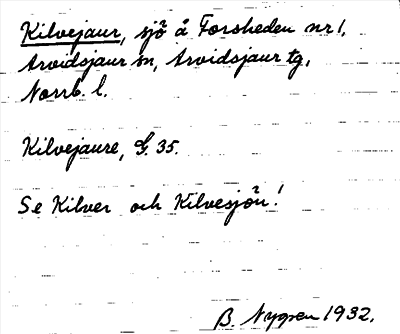 Kilvejaur, sjö å Forsheden nr 1,
Arvidsjaur sn, Arvidsjaur tg,
Norrb. l.
Kilvejaure, G. 35.
Se Kilver och Kilvesjön!
B. Nygren 1932.